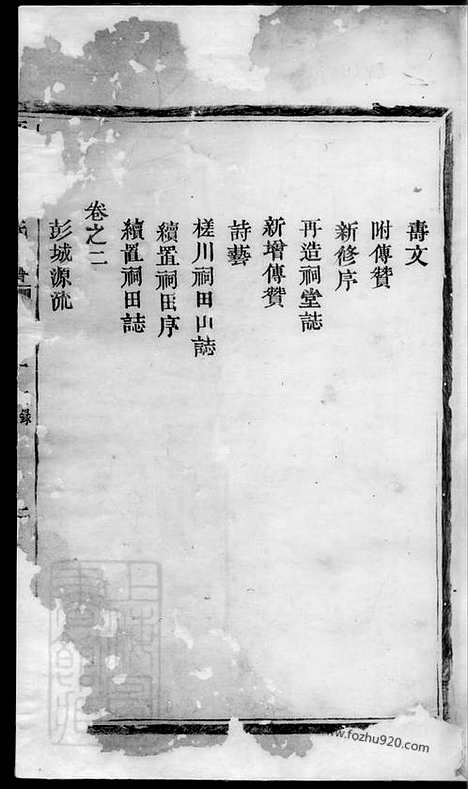 壽文
附傳贊
新修序
再造祠堂誌
新增傳贊
詩藝
槎川祠田山誌
續置祠田序
續置祠田誌
卷之二
彭城源流
錄
www.fozhu920.com